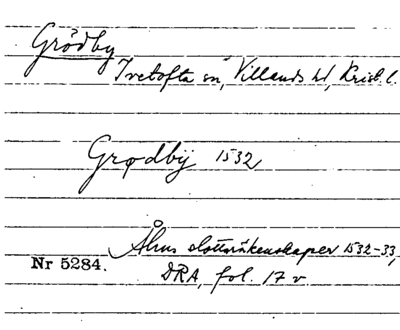 Grödby
Ivetofta sn, Villands hd, Krist. l.
Grødbÿ 1532
Åhus slottsräkenskaper 1532-33,
Nr 5284. DRA, fol. 17 v